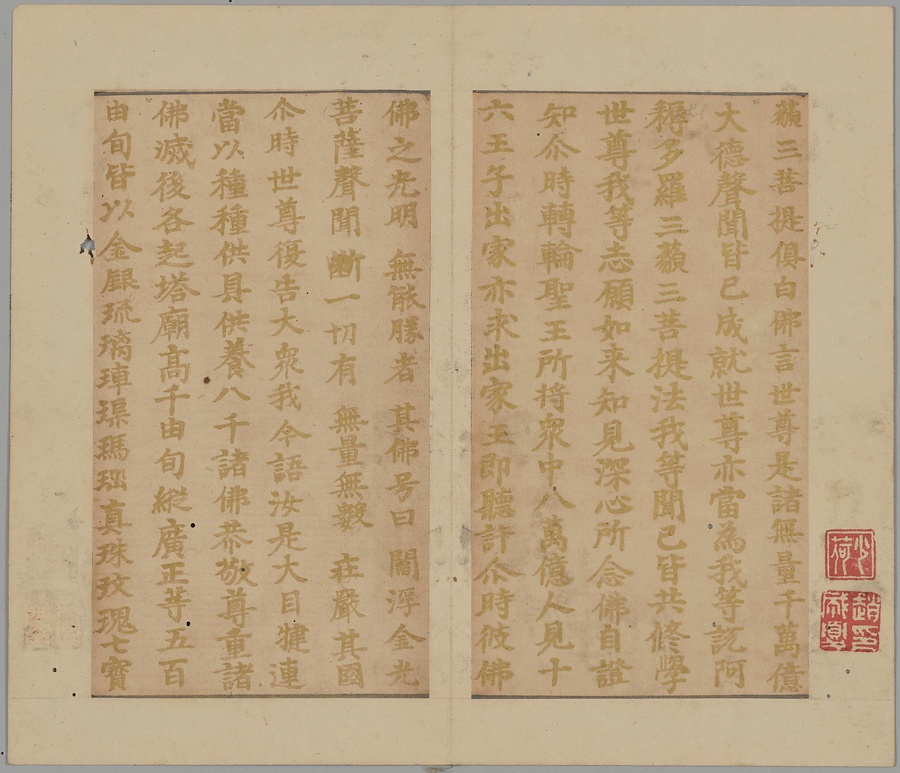 藐三菩提俱白佛言世尊是諸無量千萬億
大德聲聞皆已成就世尊亦當為我等說阿
耨多羅三藐三菩提法我等聞已皆共修學
世尊我等志願如来知見深心所念佛自證
知尒時轉輪聖王所将衆中八萬億人見十
六王子出家亦求出家王即聽許尒時彼佛
佛之光明 無能勝者 其佛号曰 閻浮金光
菩薩聲聞 斷一切有 無量無數 莊嚴其國
尒時世尊復告大衆我今語汝是大目犍連
當以種種供具供養八千諸佛恭敬尊重諸
佛滅後各起塔廟高千由旬縱廣正等五百
由旬皆以金銀琉璃硨磲瑪瑙真珠玫瑰七寶